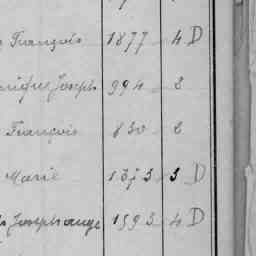 François 1877 4 D
Joseph 994 8
François 830 6
Marie 1373 3 D
Josephange 1593 4 D